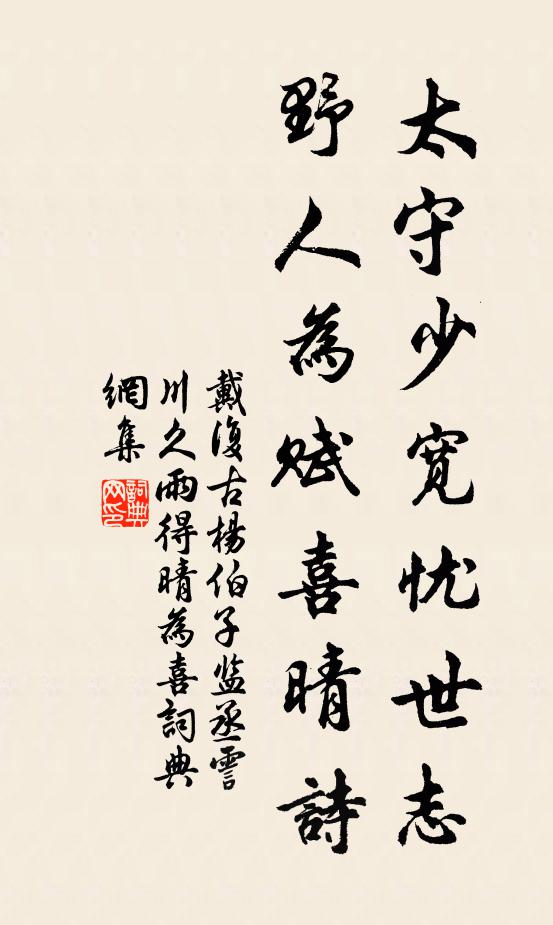 太守少寬忧世志
野人為赋喜晴詩
戴復古楊伯子监丞霅
川久雨得晴為喜詞典
網集
詞典
网印